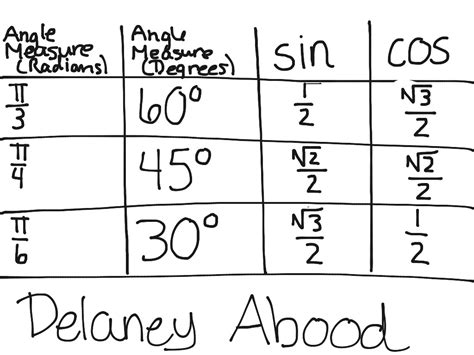 Angle Measure (Radians) Angle Measure (Degrees) sin cos
π/3 60° 1/2 √3/2
π/4 45° √2/2 √2/2
π/6 30° √3/2 1/2
Delaney Abood